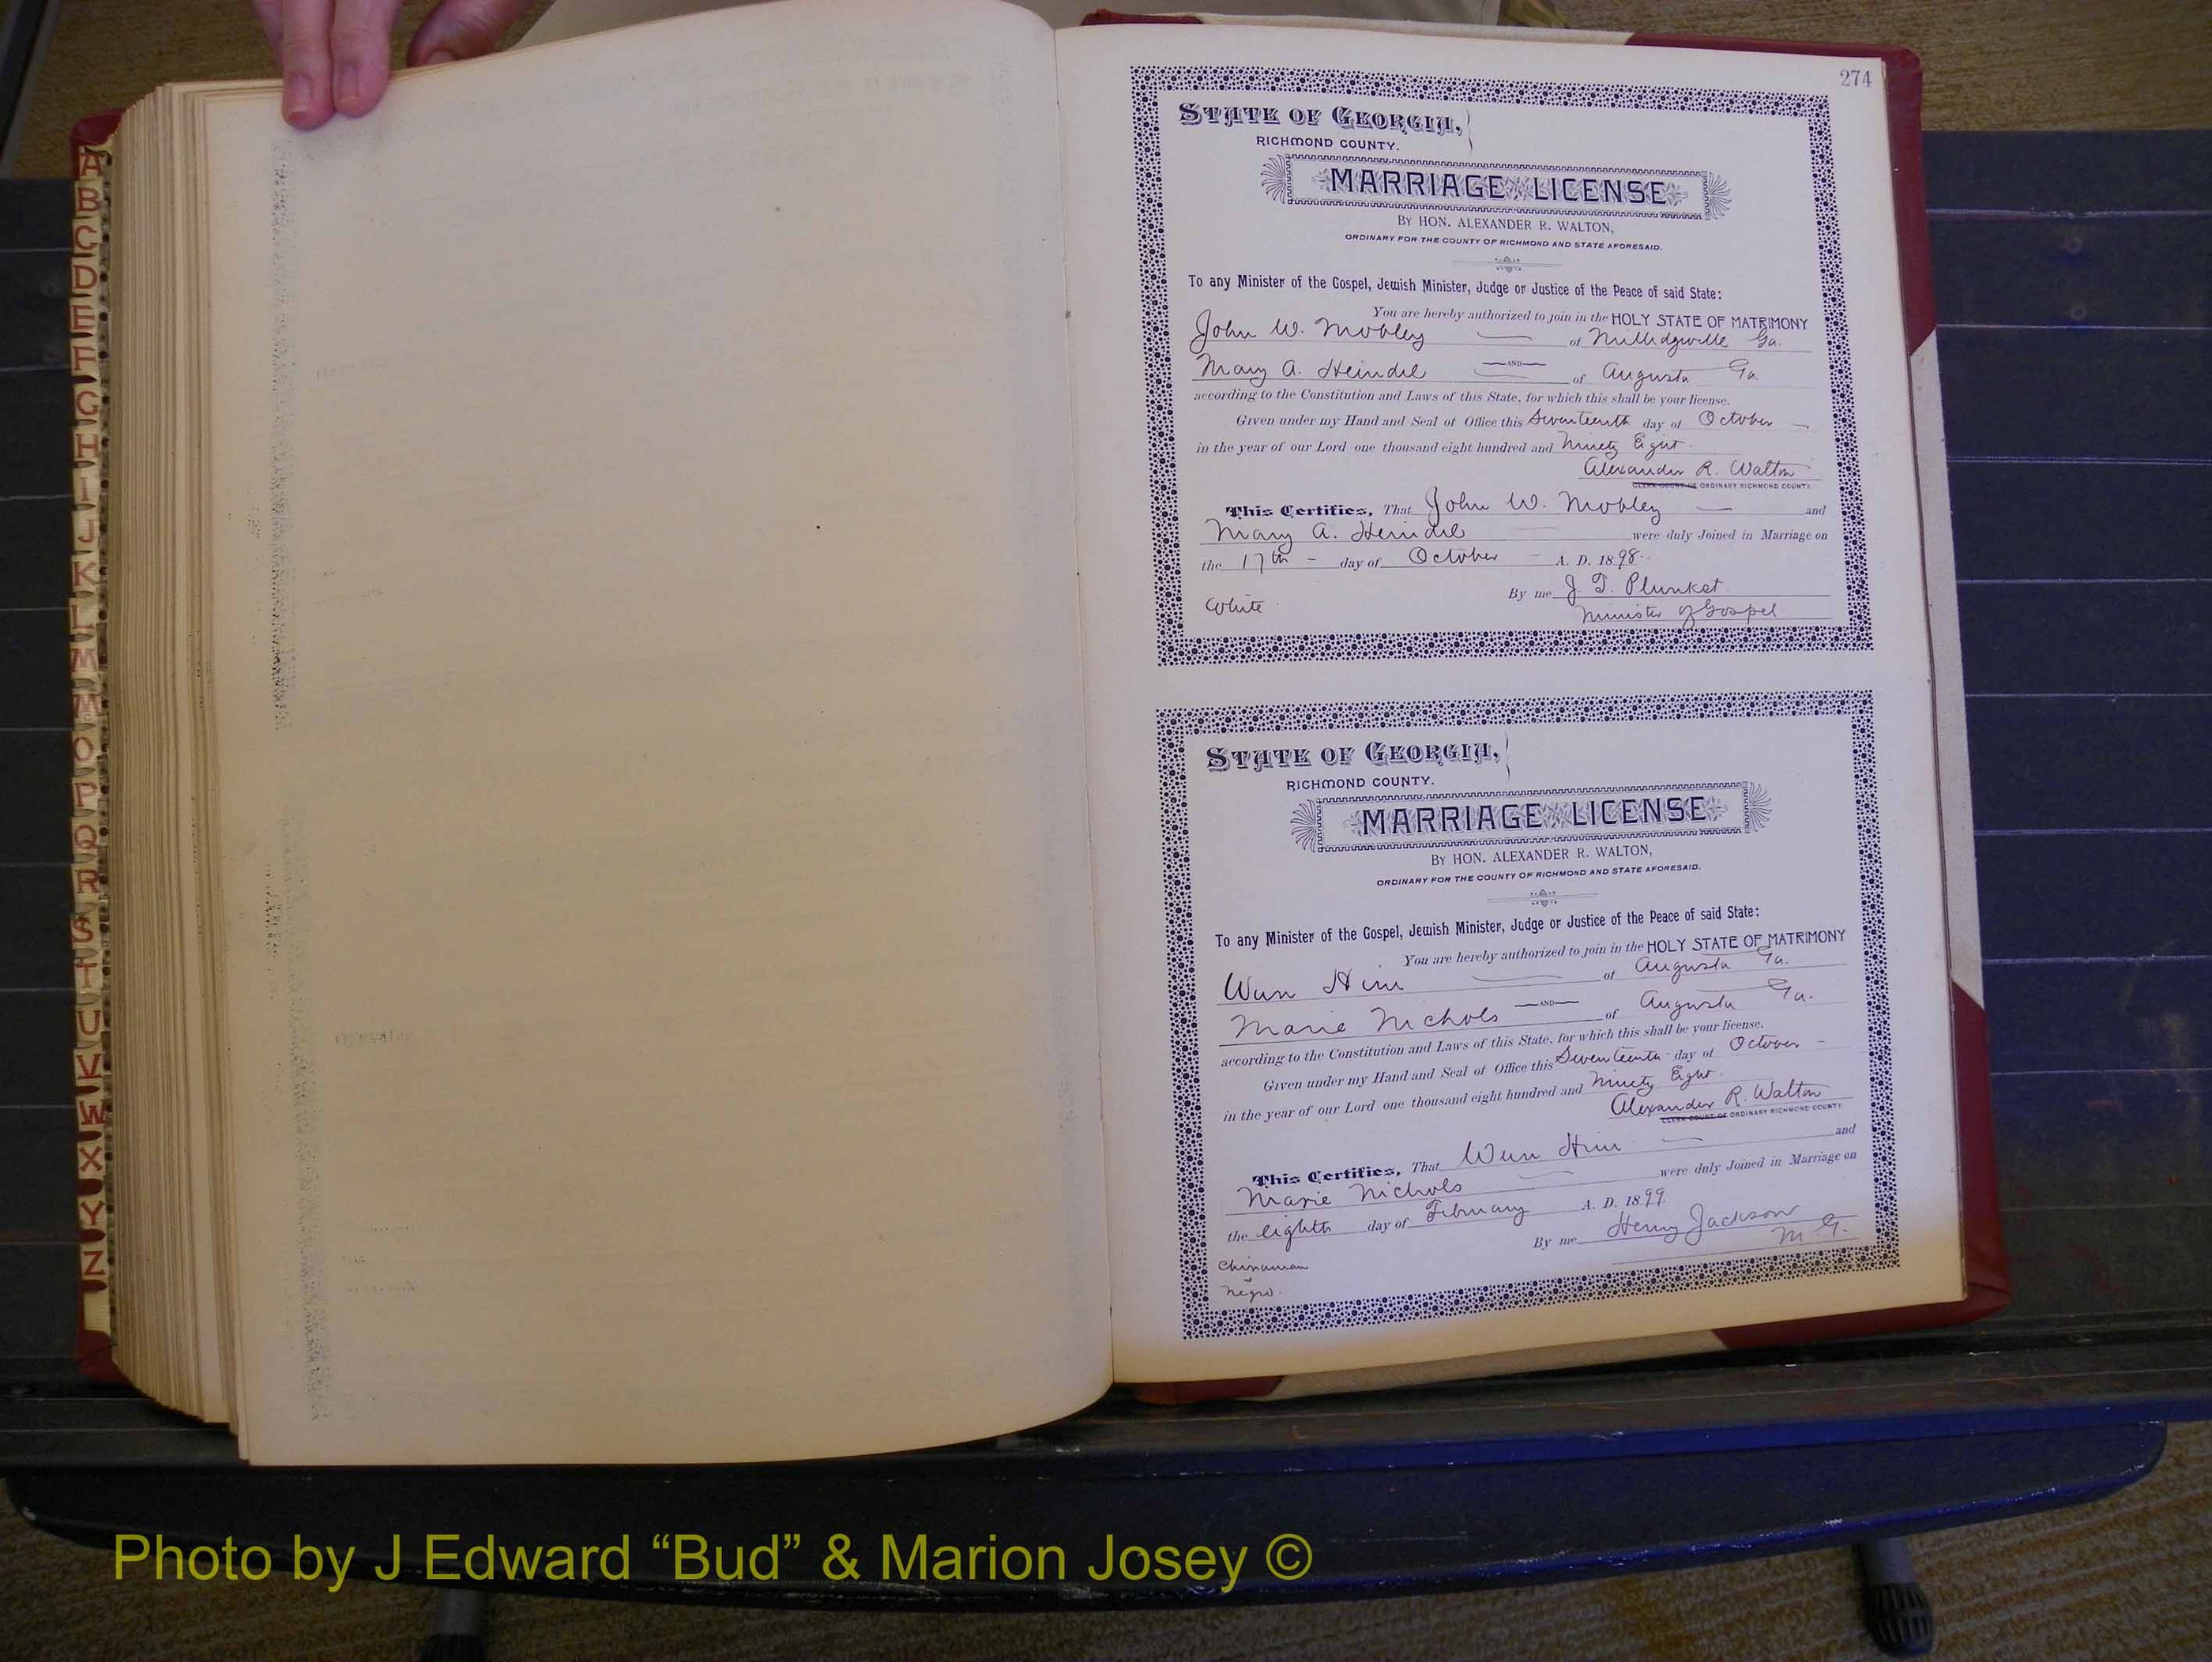 274
A
B
C
D
E
F
G
H
I
J
K
L
M
Mc
O
P
Q
R
S
T
U
V
W
X
Y
Z
STATE OF GEORGIA,
RICHMOND COUNTY.
MARRIAGE LICENSE
BY HON. ALEXANDER R. WALTON,
ORDINARY FOR THE COUNTY OF RICHMOND AND STATE AFORESAID.
To any Minister of the Gospel, Jewish Minister, Judge or Justice of the Peace of said State:
You are hereby authorized to join in the HOLY STATE OF MATRIMONY
John W. Mobley of Milledgeville Ga.
AND
Mary A. Heindel of Augusta Ga.
according to the Constitution and Laws of this State, for which this shall be your license.
Given under my Hand and Seal of Office this Seventeenth day of October
in the year of our Lord one thousand eight hundred and Ninety Eight.
Alexander R. Walton
CLERK COURT OF ORDINARY RICHMOND COUNTY.
This Certifies, That John W. Mobley and
Mary A. Heindel were duly Joined in Marriage on
the 17th day of October A. D. 1898.
By me J. T. Plunket
White Minister of Gospel
STATE OF GEORGIA,
RICHMOND COUNTY.
MARRIAGE LICENSE
BY HON. ALEXANDER R. WALTON,
ORDINARY FOR THE COUNTY OF RICHMOND AND STATE AFORESAID.
To any Minister of the Gospel, Jewish Minister, Judge or Justice of the Peace of said State:
You are hereby authorized to join in the HOLY STATE OF MATRIMONY
Wun Him of Augusta Ga.
AND
Marie Nichols of Augusta Ga.
according to the Constitution and Laws of this State, for which this shall be your license.
Given under my Hand and Seal of Office this Seventeenth day of October
in the year of our Lord one thousand eight hundred and Ninety Eight.
Alexander R. Walton
CLERK COURT OF ORDINARY RICHMOND COUNTY.
This Certifies, That Wun Him and
Marie Nichols were duly Joined in Marriage on
the eighth day of February A. D. 1899
By me Henry Jackson
M. G.
Chinaman
negro.
Photo by J Edward “Bud” & Marion Josey ©